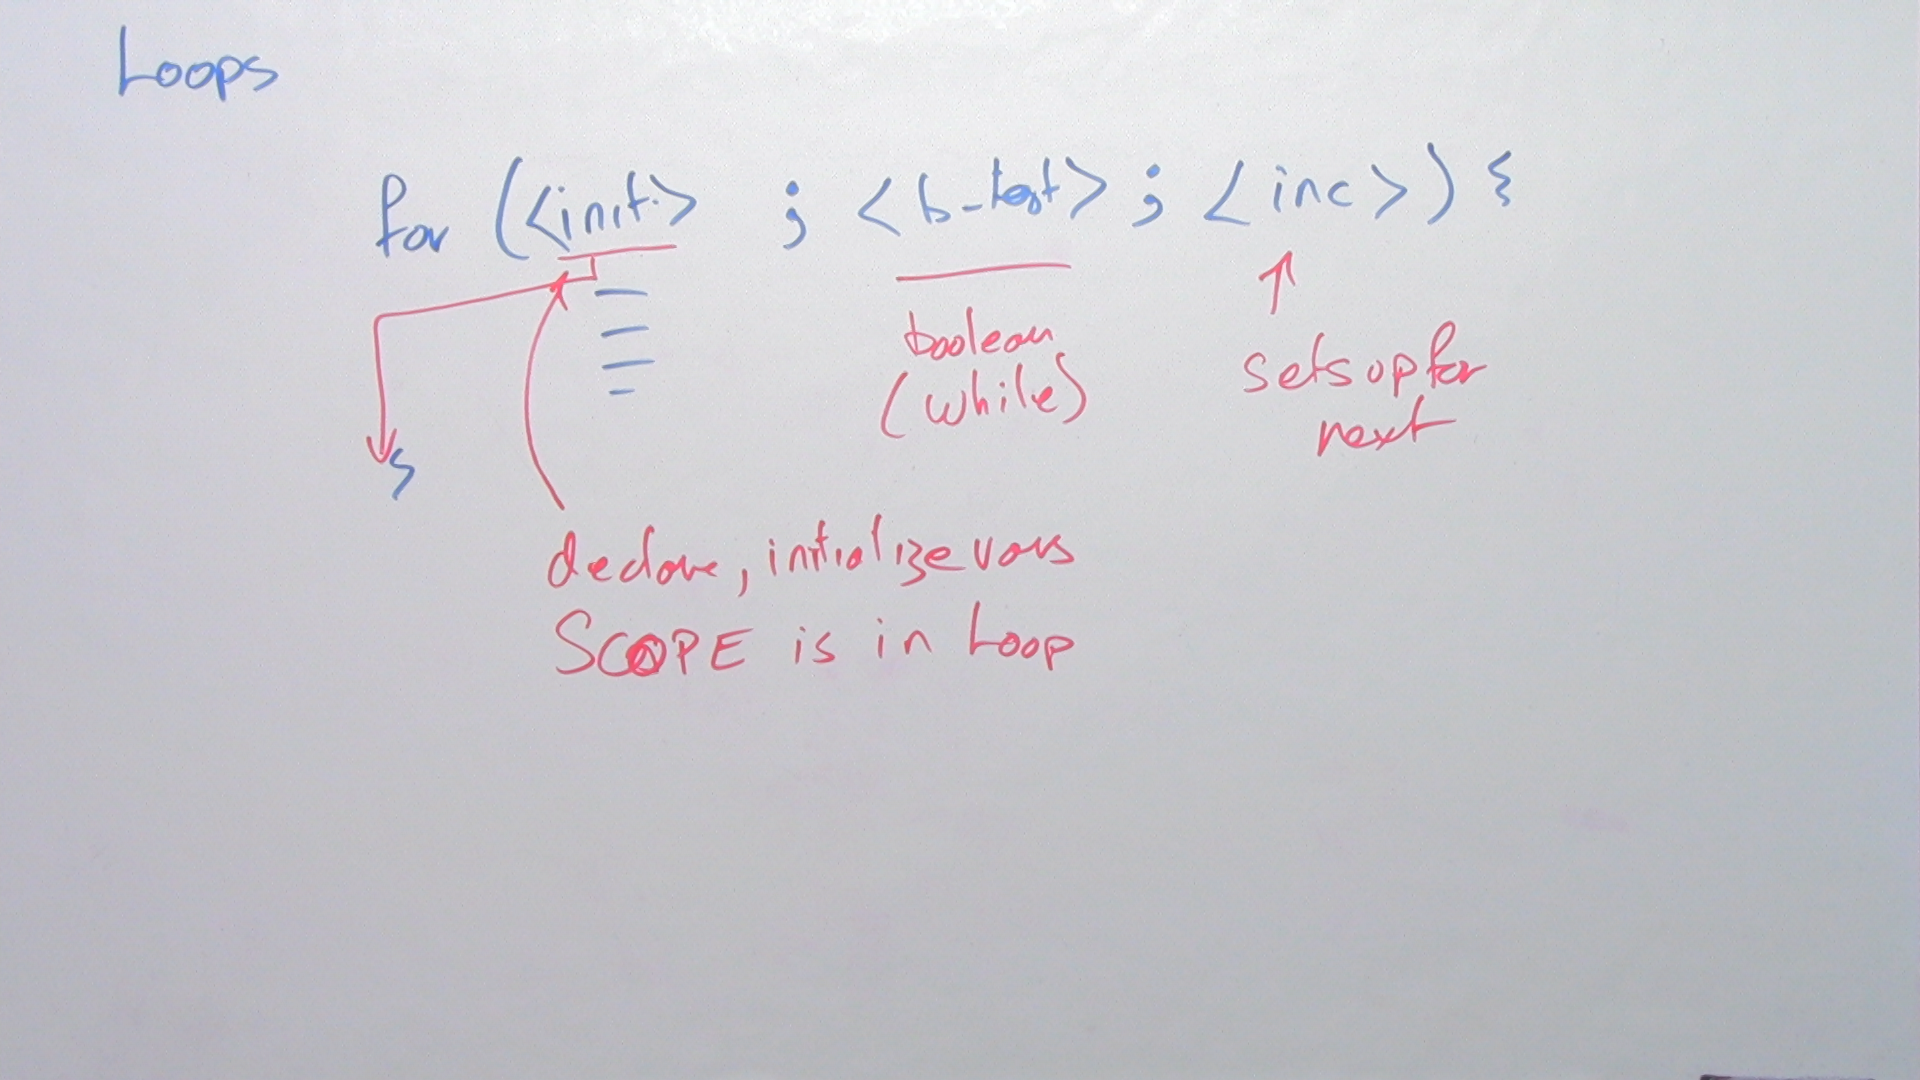 Loops
for (<init.> ; <b-test> ; <inc>) {
boolean
(while)
sets up for
next
}
declare, initialize vars
SCOPE is in Loop